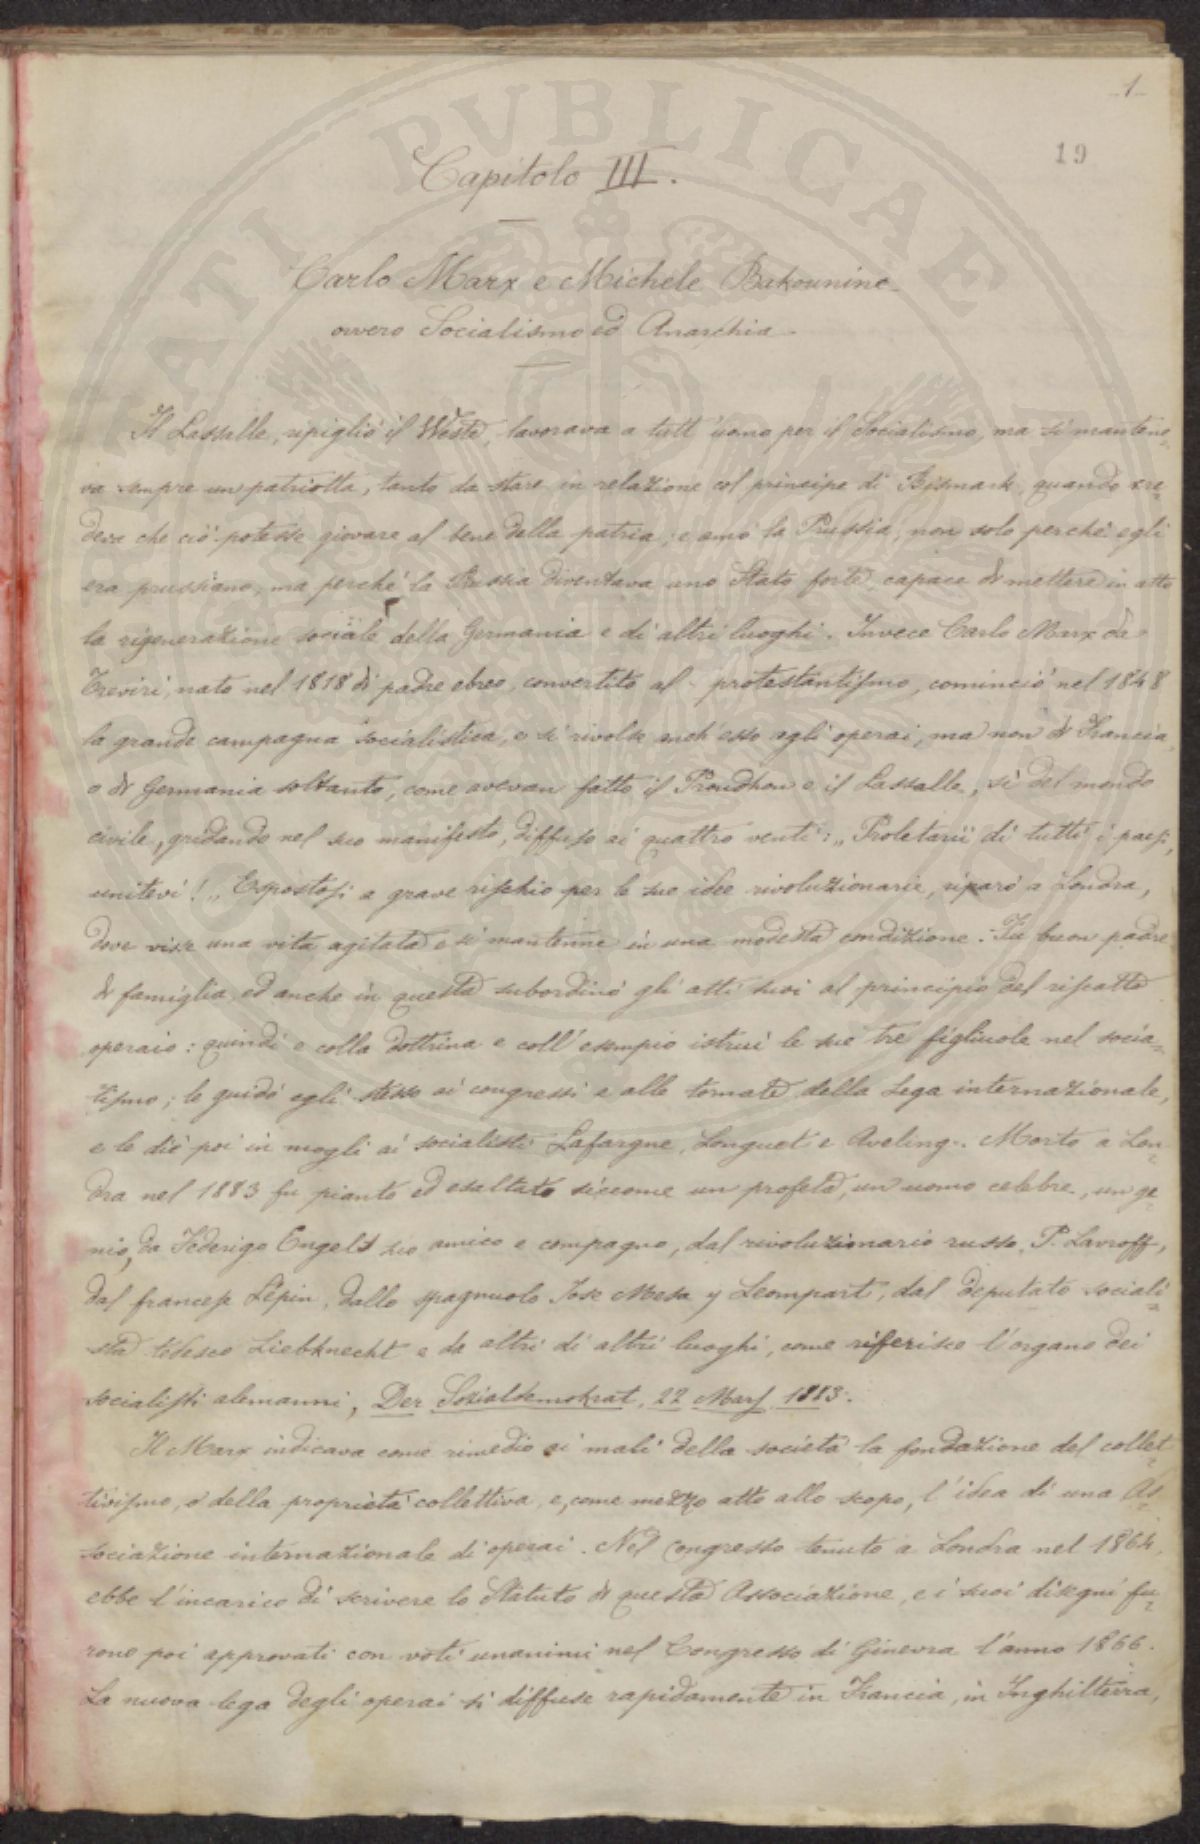 -1-
19
Capitolo III.
Carlo Marx e Michele Bakounine
ovvero Socialismo ed Anarchia
Il Lassalle, ripigliò il Weste, lavorava a tutt'uomo per il Socialismo, ma si mantene=
va sempre un patriotta, tanto da stare in relazione col principe di Bismark, quando cre=
deva che ciò potesse giovare al bene della patria; e amò la Prussia, non solo perchè egli
era prussiano, ma perchè la Prussia diventava uno Stato forte, capace di mettere in atto
la rigenerazione sociale della Germania e di altri luoghi. Invece Carlo Marx da
Treviri, nato nel 1818 di padre ebreo, convertito al protestantismo, cominciò nel 1848
la grande campagna socialistica, e si rivolse anch'esso agli operai, ma non di Francia,
o di Germania soltanto, come avevan fatto il Proudhon e il Lassalle, sì del mondo
civile, gridando nel suo manifesto, diffuso ai quattro venti: „Proletarii di tutti i paesi,
unitevi!„ Espostosi a grave rischio per le sue idee rivoluzionarie, riparò a Londra,
dove visse una vita agitata e si mantenne in una modesta condizione. Fu buon padre
di famiglia, ed anche in questa subordinò gli atti suoi al principio del riscatto
operaio: quindi e colla dottrina e coll'esempio istruì le sue tre figliuole nel socia=
lismo; le guidò egli stesso ai congressi e alle tornate della Lega internazionale,
e le diè poi in mogli ai socialisti Lafargue, Longuet e Aveling. Morto a Lon=
dra nel 1883 fu pianto ed esaltato siccome un profeta, un uomo celebre, un ge=
nio, da Federigo Engels suo amico e compagno, dal rivoluzionario russo P. Lavroff,
dal francese Lépin, dallo spagnuolo Jose Mesa y Leompart, dal deputato sociali=
sta tedesco Liebknecht e da altri di altri luoghi, come riferisce l'organo dei
socialisti alemanni, Der Sozialdemokrat, 22 Mars 1883.
Il Marx indicava come rimedio ai mali della società la fondazione del collet=
tivismo, o della proprietà collettiva, e, come mezzo atto allo scopo, l'idea di una As=
sociazione internazionale di operai. Nel Congresso tenuto a Londra nel 1864,
ebbe l'incarico di scrivere lo Statuto di questa Associazione, e i suoi disegni fu=
rono poi approvati con voti unanimi nel Congresso di Ginevra l'anno 1866.
La nuova lega degli operai si diffuse rapidamente in Francia, in Inghilterra,